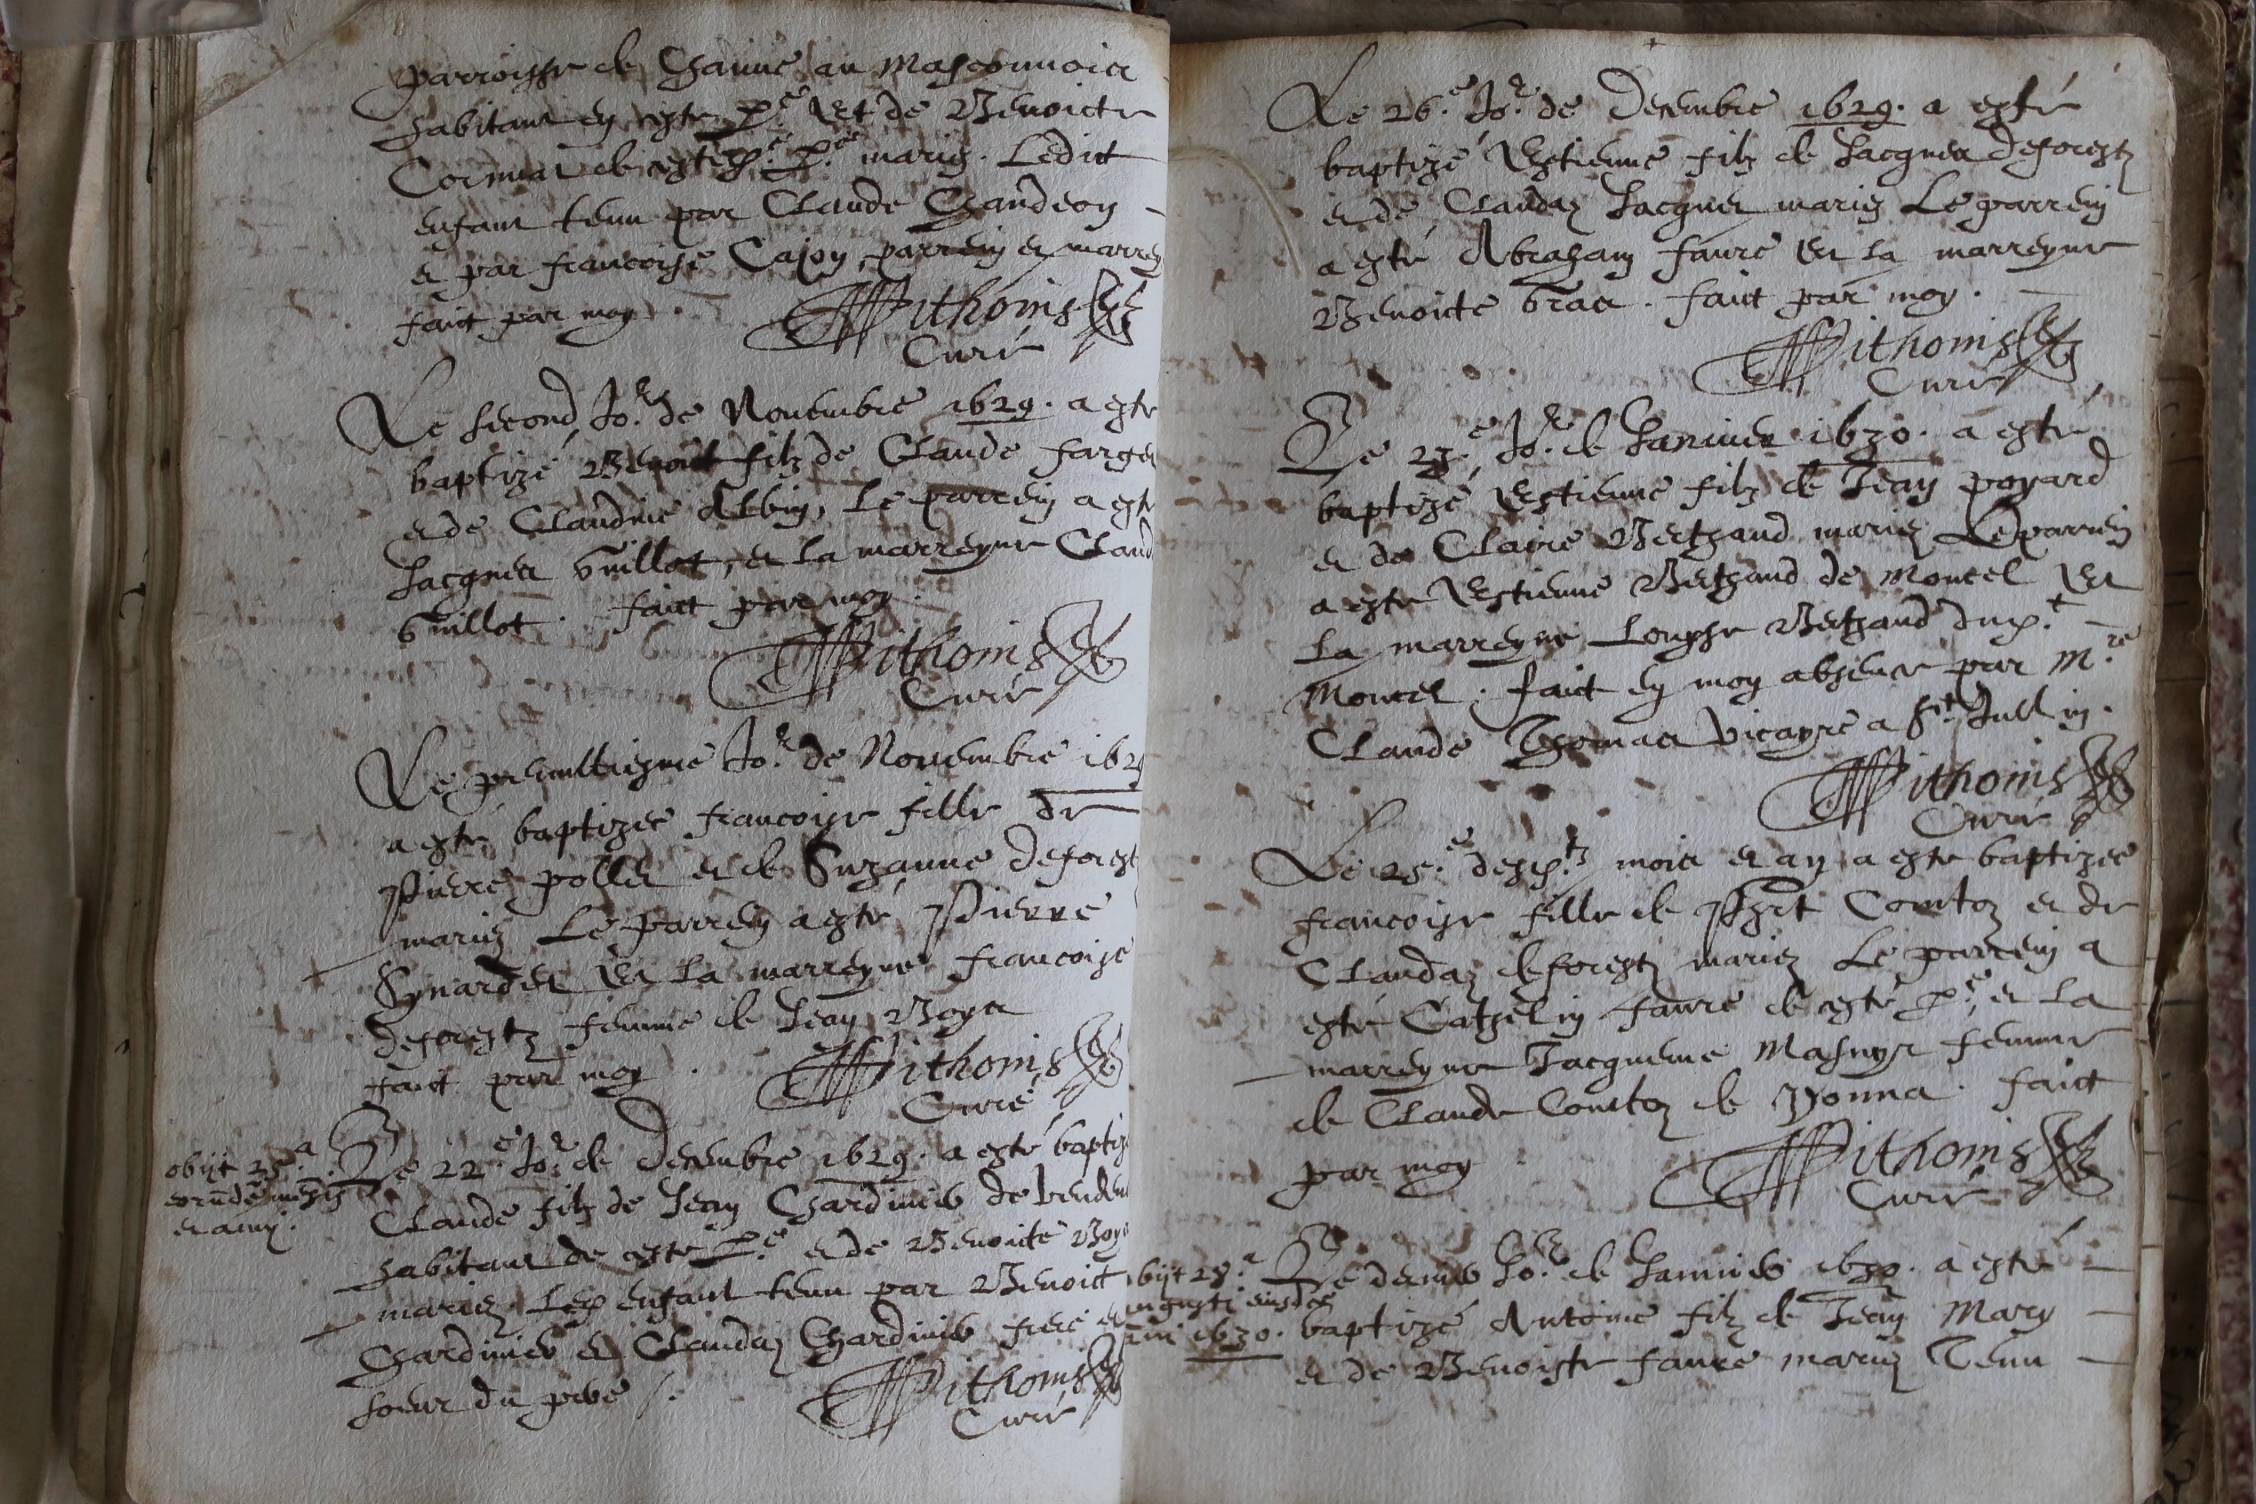 parroisse de Channe au masconnois
habitant en ceste p.e Et de Benoicte
Cornua de ceste p.e mariez. Ledict
enfant tenu par Claude Chandeon
et par francoise Cajon, parrein et marrey
faict par moy. Pithoins
Curé
Le second Jo.r de Novembre 1629. a esté
baptizé Benoict filz de Claude farges
et de Claudine Albin, Le parrein a esté
Jacques Guillot, et la marreyne Claud
Guillot. faict par moy.
Pithoins
Curé
Le Jo.r de Novembre 162
a esté baptizee francoise fille de
Pierre pollet et de Suzanne deforestz
mariez Le parrein a esté Pierre
Synardet Et la marreyne francoise
deforestz femme de Jean Boyer
faict par moy. Pithoins
Curé
Le 22.e Jo.r de decembre 1629. a esté baptiz
obijt 25.a
mensis
et anni.
Claude filz de Jean Chardinier de
habitant de ceste p.e et de Benoicte Boye
mariez. enfant tenu par Benoict
Chardinier et Claudaz Chardinier frere et
soeur du pere
Pithoins
Curé
Le 26.e Jo.r de Decembre 1629. a esté
baptizé Estienne filz de Jacques deforestz
et de Claudaz Jacquet mariez Le parrein
a esté Abraham faure Et la marreyne
Benoicte bras. faict par moy.
Pithoins
Curé
Le 23.e Jo.r de Janvier 1630. a esté
baptizé Estienne filz de Jean poyard
et de Claire Berthaud mariez Le parrein
a esté Estienne Berthaud de Moncel Et
La marreyne Louyse Berthaud dup.t
Moncel. faict en moy absence par M.re
Claude Thomas vicayre a S.t Jullin.
Pithoins
Curé
Le 25.e desp.tz mois et an a esté baptizee
francoise fille de Phet Comtoz et de
Claudaz deforestz mariez Le parrein a
esté Cathelin faure de ceste p.e, et La
marreyne Jacqueme Masuyr femme
de Claude Comtoz de Yonna. faict
par moy Pithoins
Curé
obijt 28.a
augusti eiusdem
anni 1630.
Le dernier Jo.r de Janvier 1630. a esté
baptizé Antoine filz de Jean Mary
et de Benoiste faure mariez Tenu